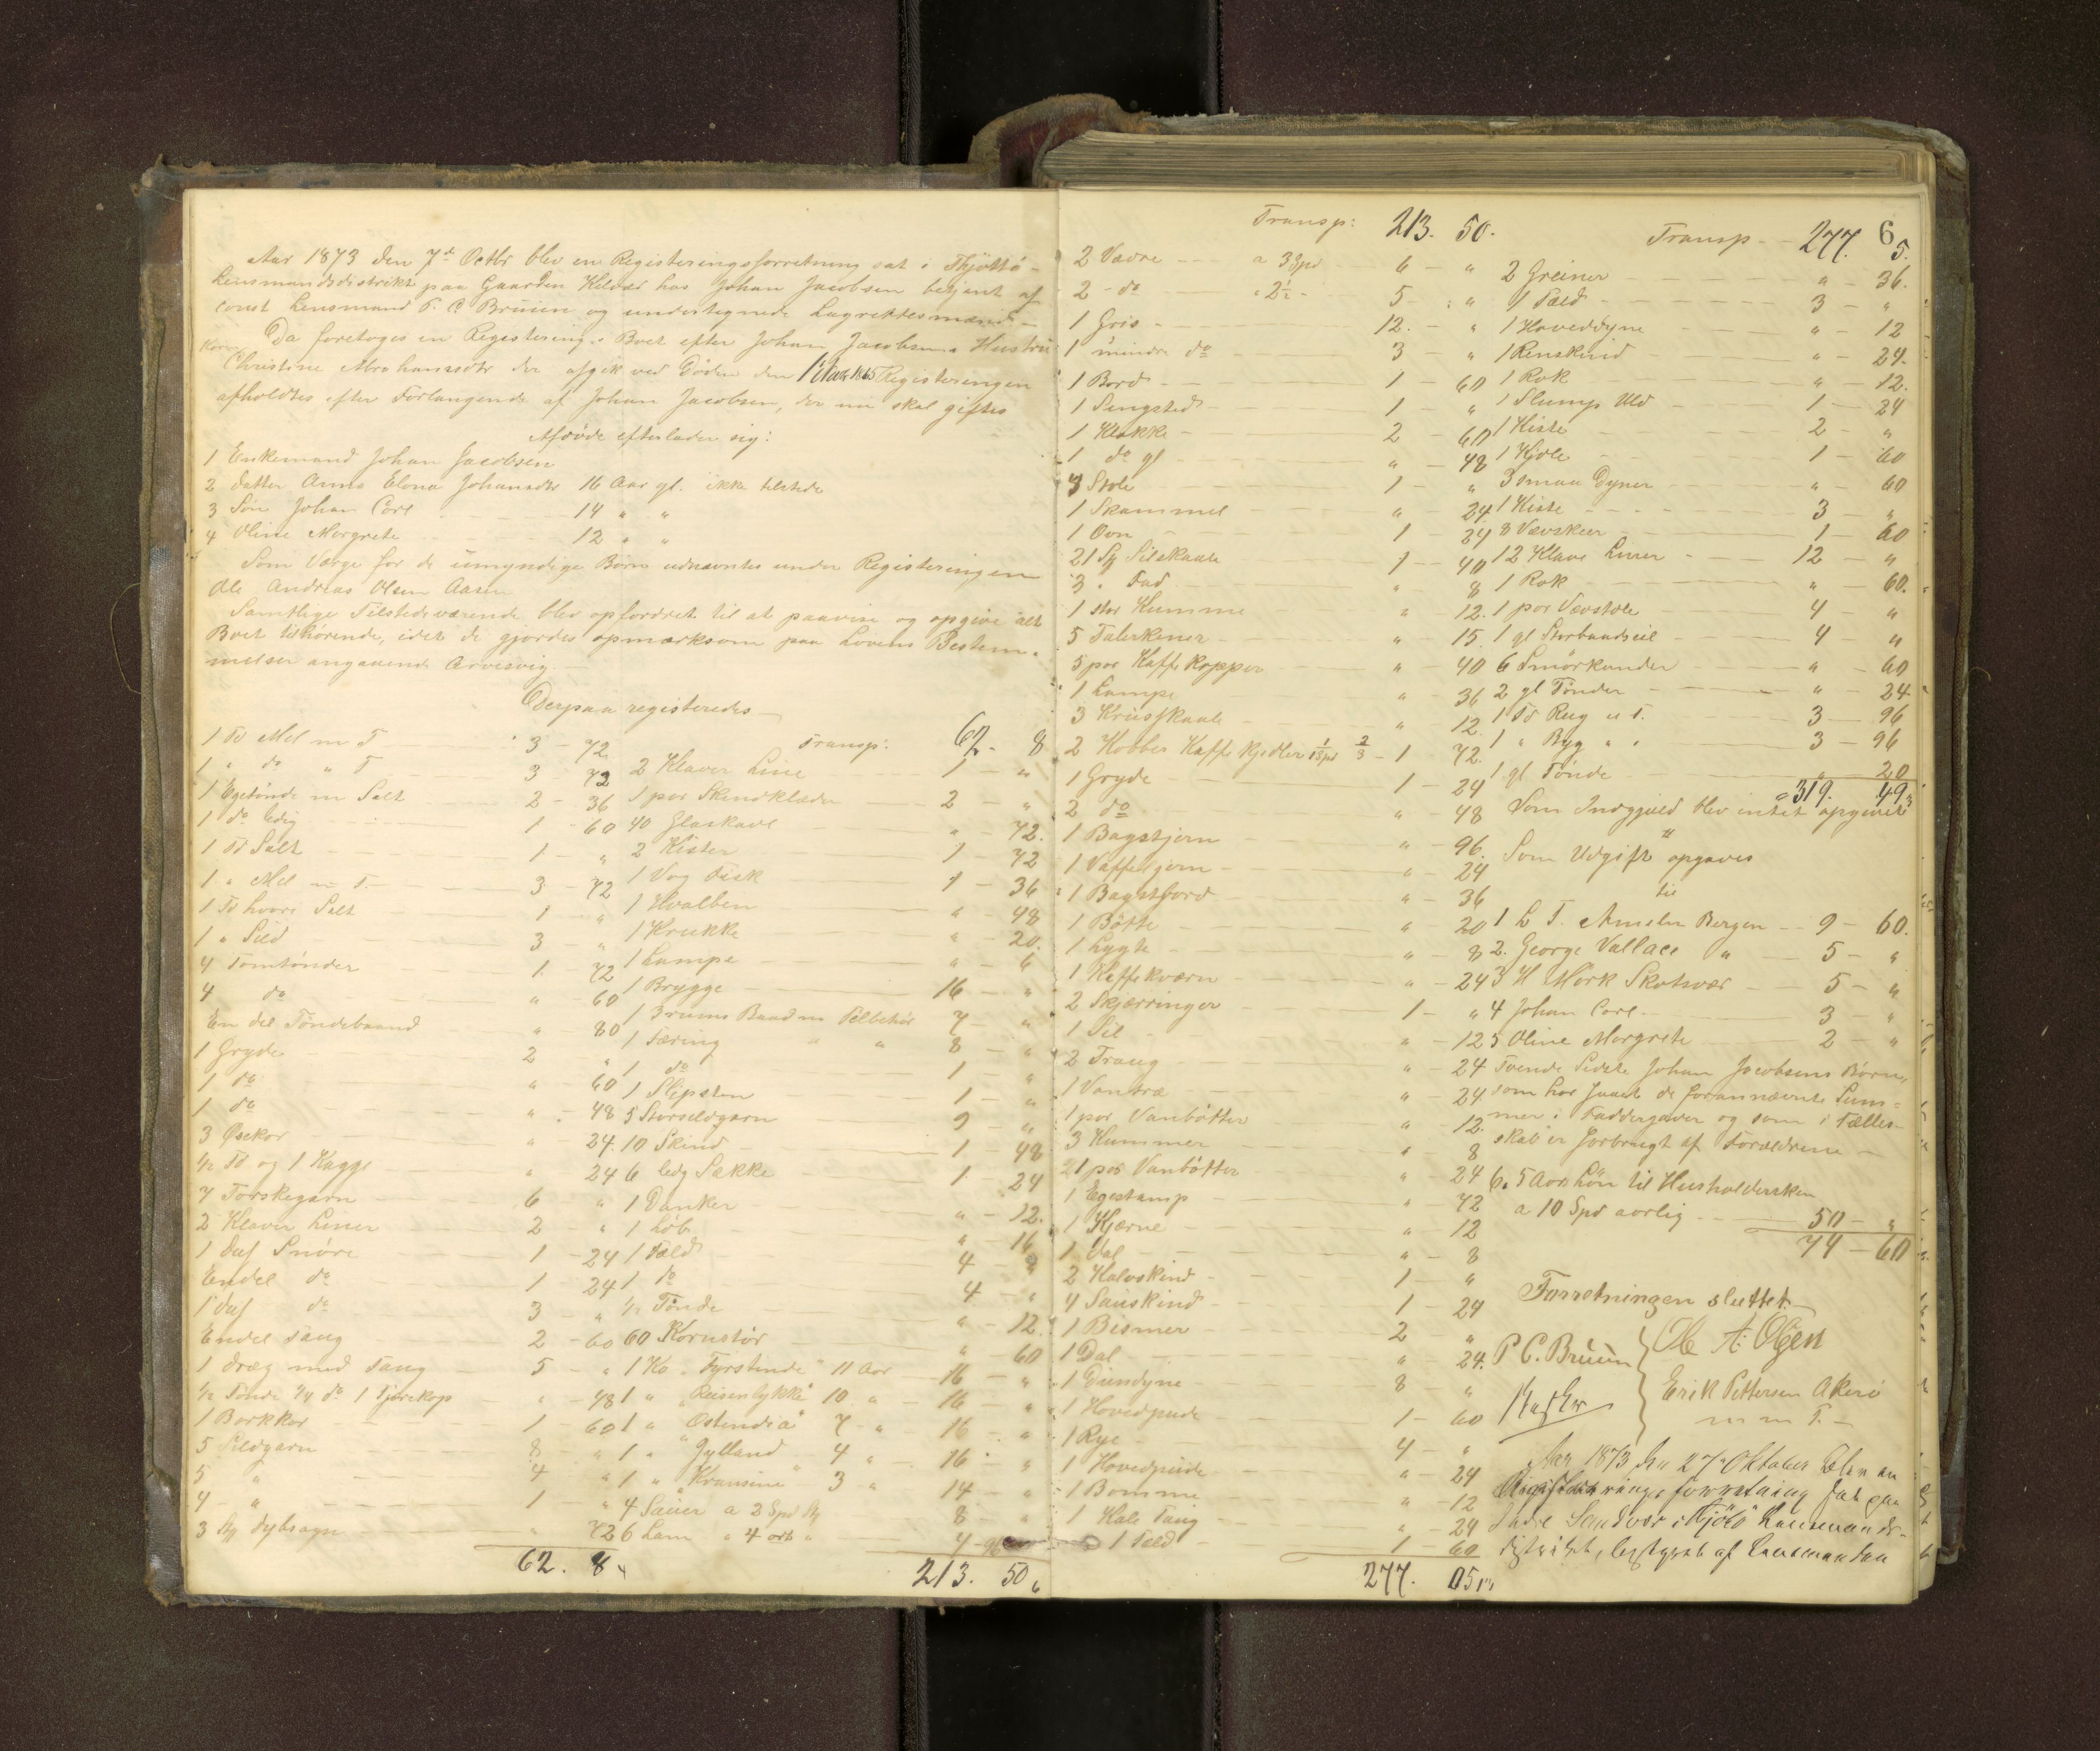 Aar 1873 den 7de Octbr blev en Registeringsforretning sat i Thjöttö-
Lensmandsdistrikt paa Gaarden Kilvær hos Johan Jacobsen betjent af
const Lensmand P. C. Bruun og undertegnede Lagrettesmænd
Da foretoges en Registering i Boet efter Johan Jacobsens Hustru
Karen
Christine Abrahamsdtr der afgik ved Döden den 1865 Registeringen
afholdtes efter Forlangende af Johan Jacobsen, der nu skal giftes
Afdöde efterlader sig:
1 Enkemand Johan Jacobsen
2 datter Anna Elona Johansdtr 16 Aar gl. ikke tilstede
3 Sön Johan Carl 14 " "
4 Oline Margrete 12 " "
Som Værge for de umyndige Börn udnævntes under Registeringen
Ole Andreas Olsen Aasen
Samtlige Tilstedeværende blev opfordret til at paavise og opgive alt
Boet tilhörende, idet de gjordes opmærksom paa Lovens Bestem-
melser angaaende Arvesvig.
Derpaa registeredes
1 Td Mel m T 3 - 72
1 " do " T 3 - 72
1 Egetönde m Salt 2 - 36
1 do ledig 1 - 60
1 Td Salt 1 - "
1 " Mel m T. 3 - 72
1 Td hvori Salt 1 - "
1 " Sild 3 - "
4 Tomtönder 1 - 72
4 do " - 60
En del Töndebaand " - 80
1 Gryde 2 - "
1 do " - 60
1 do " - 48
3 Öxekar " - 24.
1/2 Td og 1 Kagge " 24
7 Torskegarn 6 "
2 Klaver Liner 2 - "
1 Snöre 1 - 24
Endel do 1 - 24
1 do 3 - "
Endel Taug 2 - 60
1 dræg med Taug 5 - "
1/2 Tönde 1/4 do 1 Tjærekop " - 48
1 Barkkar 1 - 60
5 Sildgarn 8 - "
5 " 4 "
4 - " 1 - "
3 " 72
62. 8
Transp: 62. 8
2 Klaver Line 1 - "
1 par Skindklæder 2 - "
40 Glaskavl " - 72.
2 Kister 1 72
1 Vog Fisk 1 - 36
1 Hvalben " - 48
1 Krukke " - 20.
1 Lampe " - 6
1 Brygge 16 - "
1 3rums Baad m Tilbehör 7 - "
1 Færing " " 8 - "
1 do 1 - "
1 Slipsten 1 - "
5 Storsildgarn 9 - "
10 Skind 1 - 48
6 ledg Sække 1. 24
1 Dunker " - 12.
1 Löb " - 16
1 Fæld 4 - "
1 do 4 - "
1/2 Tönde " - 12.
60 Kornstör " - 60
1 Ko "Fyrstinde" 11 Aar 16 - "
1 " "Reisenlykke" 10 " 16 - "
1 " "Ostendia" 7 - " 16 - "
1 " "Jylland 4 " 16 - "
1 " "Kransine" 3 " 14 - "
4 Sauer a 2 Spd 8 - "
6 Lam " 4 ort " 4 - 96
213. 50
Transp: 213. 50.
2 Vævre a 3 Spd 6 - "
2 - do " 2½ - 5 - "
1 Gris - 12. - "
1 mindre do 3 - "
1 Bord 1 - 60
1 Sengsted 1 - "
1 Klokke 2 - 60
1 do gl " - 48
3 Stole 1 - "
1 Skammel " - 24
1 Ovn 1 - 24
21 Silskaale 1 - 40
3 " Fad " 8
1 stor Kumme " 12.
5 Talerkener " 15.
5 par Kaffekopper " - 40
1 Lampe " - 36
3 Krusskaale " 12.
2 Kobber Kaffekjedler - 1 72.
1 Gryde 1 - 24
2 do " - 48
1 Bagstjern " - 96.
1 Vaffeljern " - 24
1 Bagstfjord " - 36
1 Bötte " - 20
1 Lygte " - 8
1 Kaffekværn " - 24
2 Skjærringer 1 - "
1 Sil " - 12
2 Traug " - 24
1 Vantræ " - 24
1 par Vanbötter " - 12.
3 Kummer " - 8
21 par Vanbötter " 24
1 Egestamp " - 72
1 Kjærne " - 12
1 Dal " - 8
2 Kalvskind 1 - "
4 Sauskind 1 - 24
1 Bismer 2 - "
1 Dal " 24.
1 Dundyne 8 - "
1 Hovedpude 1 - 60
1 Rye 4 - "
1 Hovedpude " - 24
1 Bomme " - 12
1 Hale Taug " - 24
1 Fæld 1 - 60
277. 05
Transp - 277. 5.
6
2 Greiner " - 36.
1 Fæld 3 - "
1 Hoveddyne " - 12
1 Renskind " - 24.
1 Rok " - 12.
1 Slump Uld 1 - 24
1 Kiste 2 - "
1 Kjole 1 - 60
3 smaa Dyner " - 60
1 Kiste 3 - "
8 Vævskeer 1 - 60
12 Klave Liner 12 "
1 Rok " - 60.
1 par Vævstole 4 - "
1 gl Storbaadseil 4 "
6 Smörkander " - 60
2 gl Tönder " - 24
1 Td Rug u T. 3 - 96
1 " Byg " " 3 - 96
1 gl Tönde " - 20
319. 49
Som Indgjæld blev intet opgivet
Som Udgift opgaves
til
1 L T. Bergen 9 - 60.
2. George Vallace " 5 - "
3 H Mörk Skotsvær 5 - "
4 Johan Carl 3 - "
5 Oline Margrete 2 - "
Tvende Sidste Johan Jacobsens Börn,
som har faaet de forannævnte Sum-
mer i Faddergaver og som i Fælles-
skab er forbrugt af Forældrene -
6. 5 Aars Lön til Husholdersken
a 10 Spd aarlig 50 - "
74 - 60
Forretningen sluttet.
P C. Bruun
Ole A: Olsen
Erik Pettersen
m m P. -
Aar 1873 den 27 Oktober blev en
Registeringsforretning sat paa
Sandvær i Thjöttö Lensmands-
distrikt, bestyret af Lensmanden